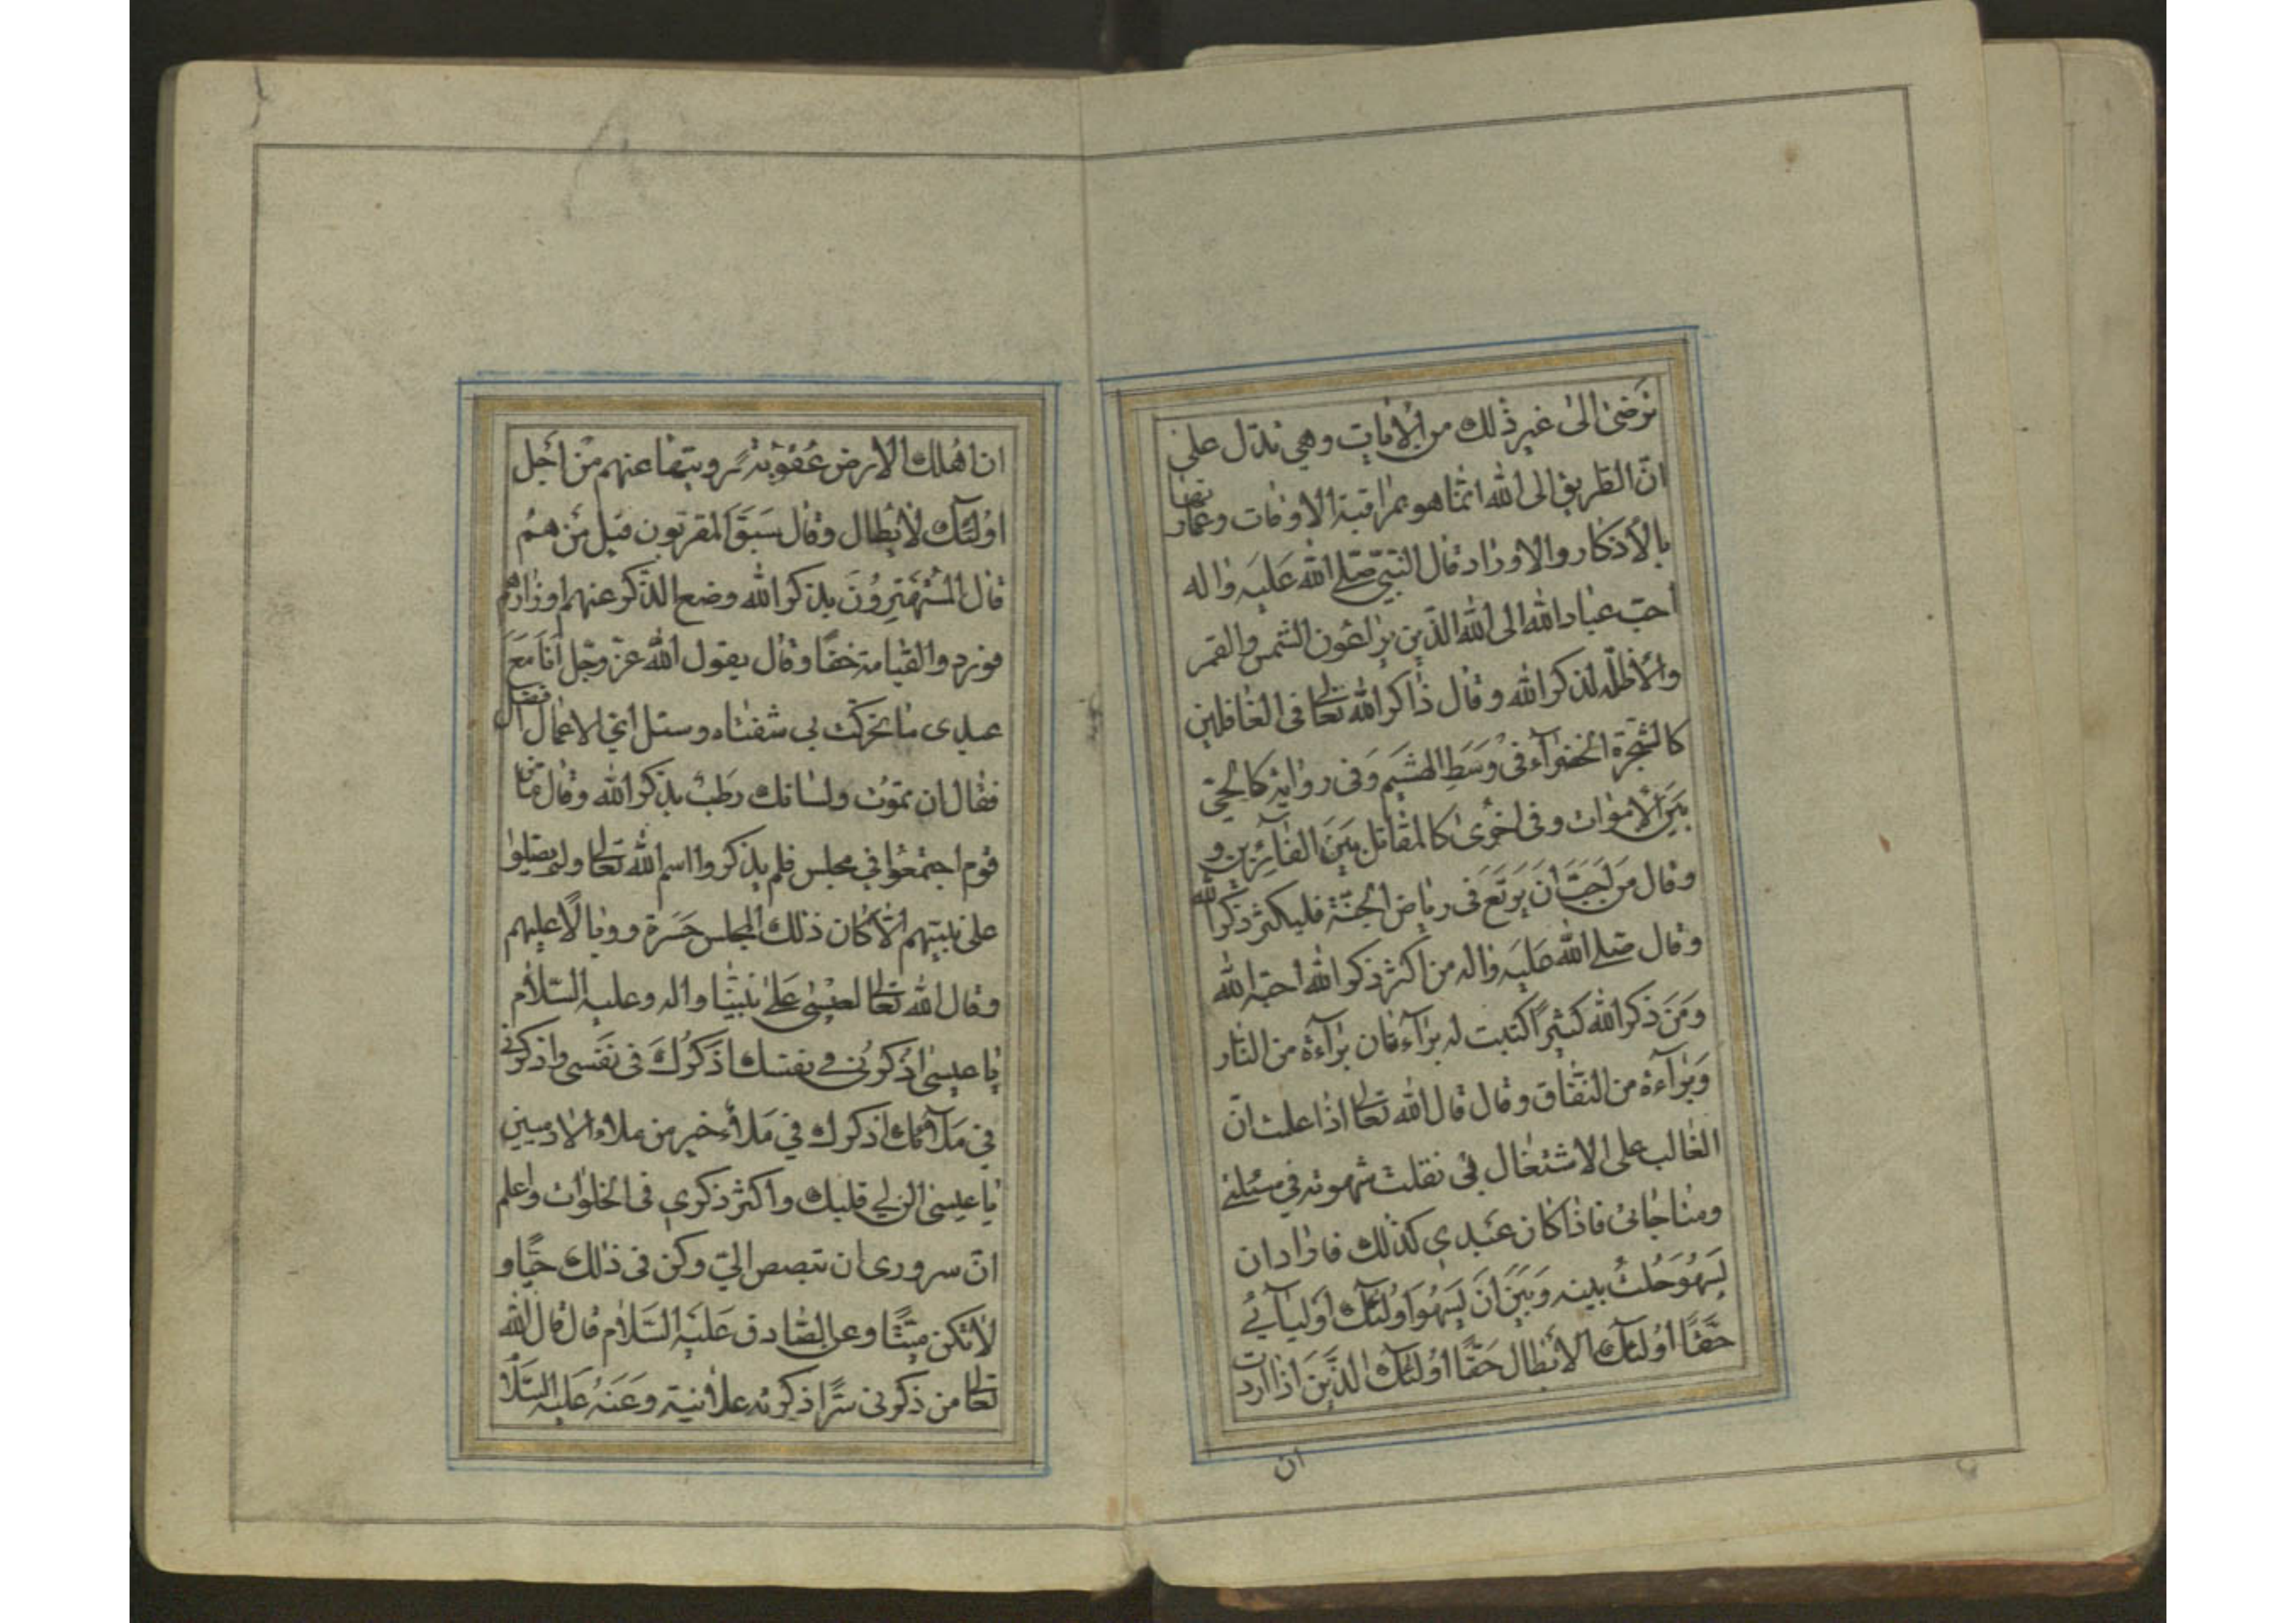 ترضى الى غير ذلك من الايات وهي تدل على
ان الطريق الى الله انما هو بمراقبة الاوقات وعمارتها
بالأذكار والاوراد قال النبي صلى الله عليه واله
أحبّ عباد الله الى الله الذين يراعون الشمس والقمر
والأظلة لذكر الله وقال ذاكر الله تعالى فى الغافلين
كالشجرة الخضرآء فى وسط الهشيم وفى رواية كالحىّ
بين الاموات وفى اخرى كالمقاتل بين الفآرّين و
وقال من احبّ ان يرتع فى رياض الجنّة فليكثر ذكر الله
وقال صلى الله عليه واله من اكثر ذكر الله احبّه الله
ومن ذكر الله كثيراً كتبت له برآءتان برآءة من النار
وبرآءة من النفاق وقال قال الله تعالى اذا علمت انّ
الغالب على الاشتغال بى نقلت شهوته فى مسئلتى
ومناجاتى فاذا كان عبدي كذلك فاراد ان
يسهو حلت بينه وبين ان يسهو اولئك اوليآئى
حقًّا اولئك الأبطال حقًّا اولئك الذين اذا اردت
ان
ان اهلك الارض عقوبة زويتها عنهم من اجل
اولئك لأبطال وقال سبق المقربون قيل من هم
قال المستهترون بذكر الله وضع الذّكر عنهم اوزارهم
فوردوا القيامة خفافا وقال يقول الله عزّ وجل أنا مع
عبدى ما تحركت بى شفتاه وسئل اى الاعمال افضل
فقال ان تموت ولسانك رطب بذكر الله وقال ما من
قوم اجتمعوا فى مجلس فلم يذكروا اسم الله تعالى ولم يصلوا
على نبيهم الّا كان ذلك المجلس حسرة ووبالًا عليهم
وقال الله تعالى لعيسى على نبينا واله وعليه السّلام
يا عيسى اذكرنى فى نفسك اذكرك فى نفسى واذكرنى
فى ملآئك اذكرك في ملأ خير من ملاء الادميين
يا عيسى الن لي قلبك واكثر ذكري فى الخلوات واعلم
انّ سرورى ان تبصبص اليّ وكن فى ذلك حيًّا و
لا تكن ميّتًا وعن الصّادق عليه السّلام قال قال الله
تعالى من ذكرنى سرًّا ذكرته علانية وعنه عليه السّلا